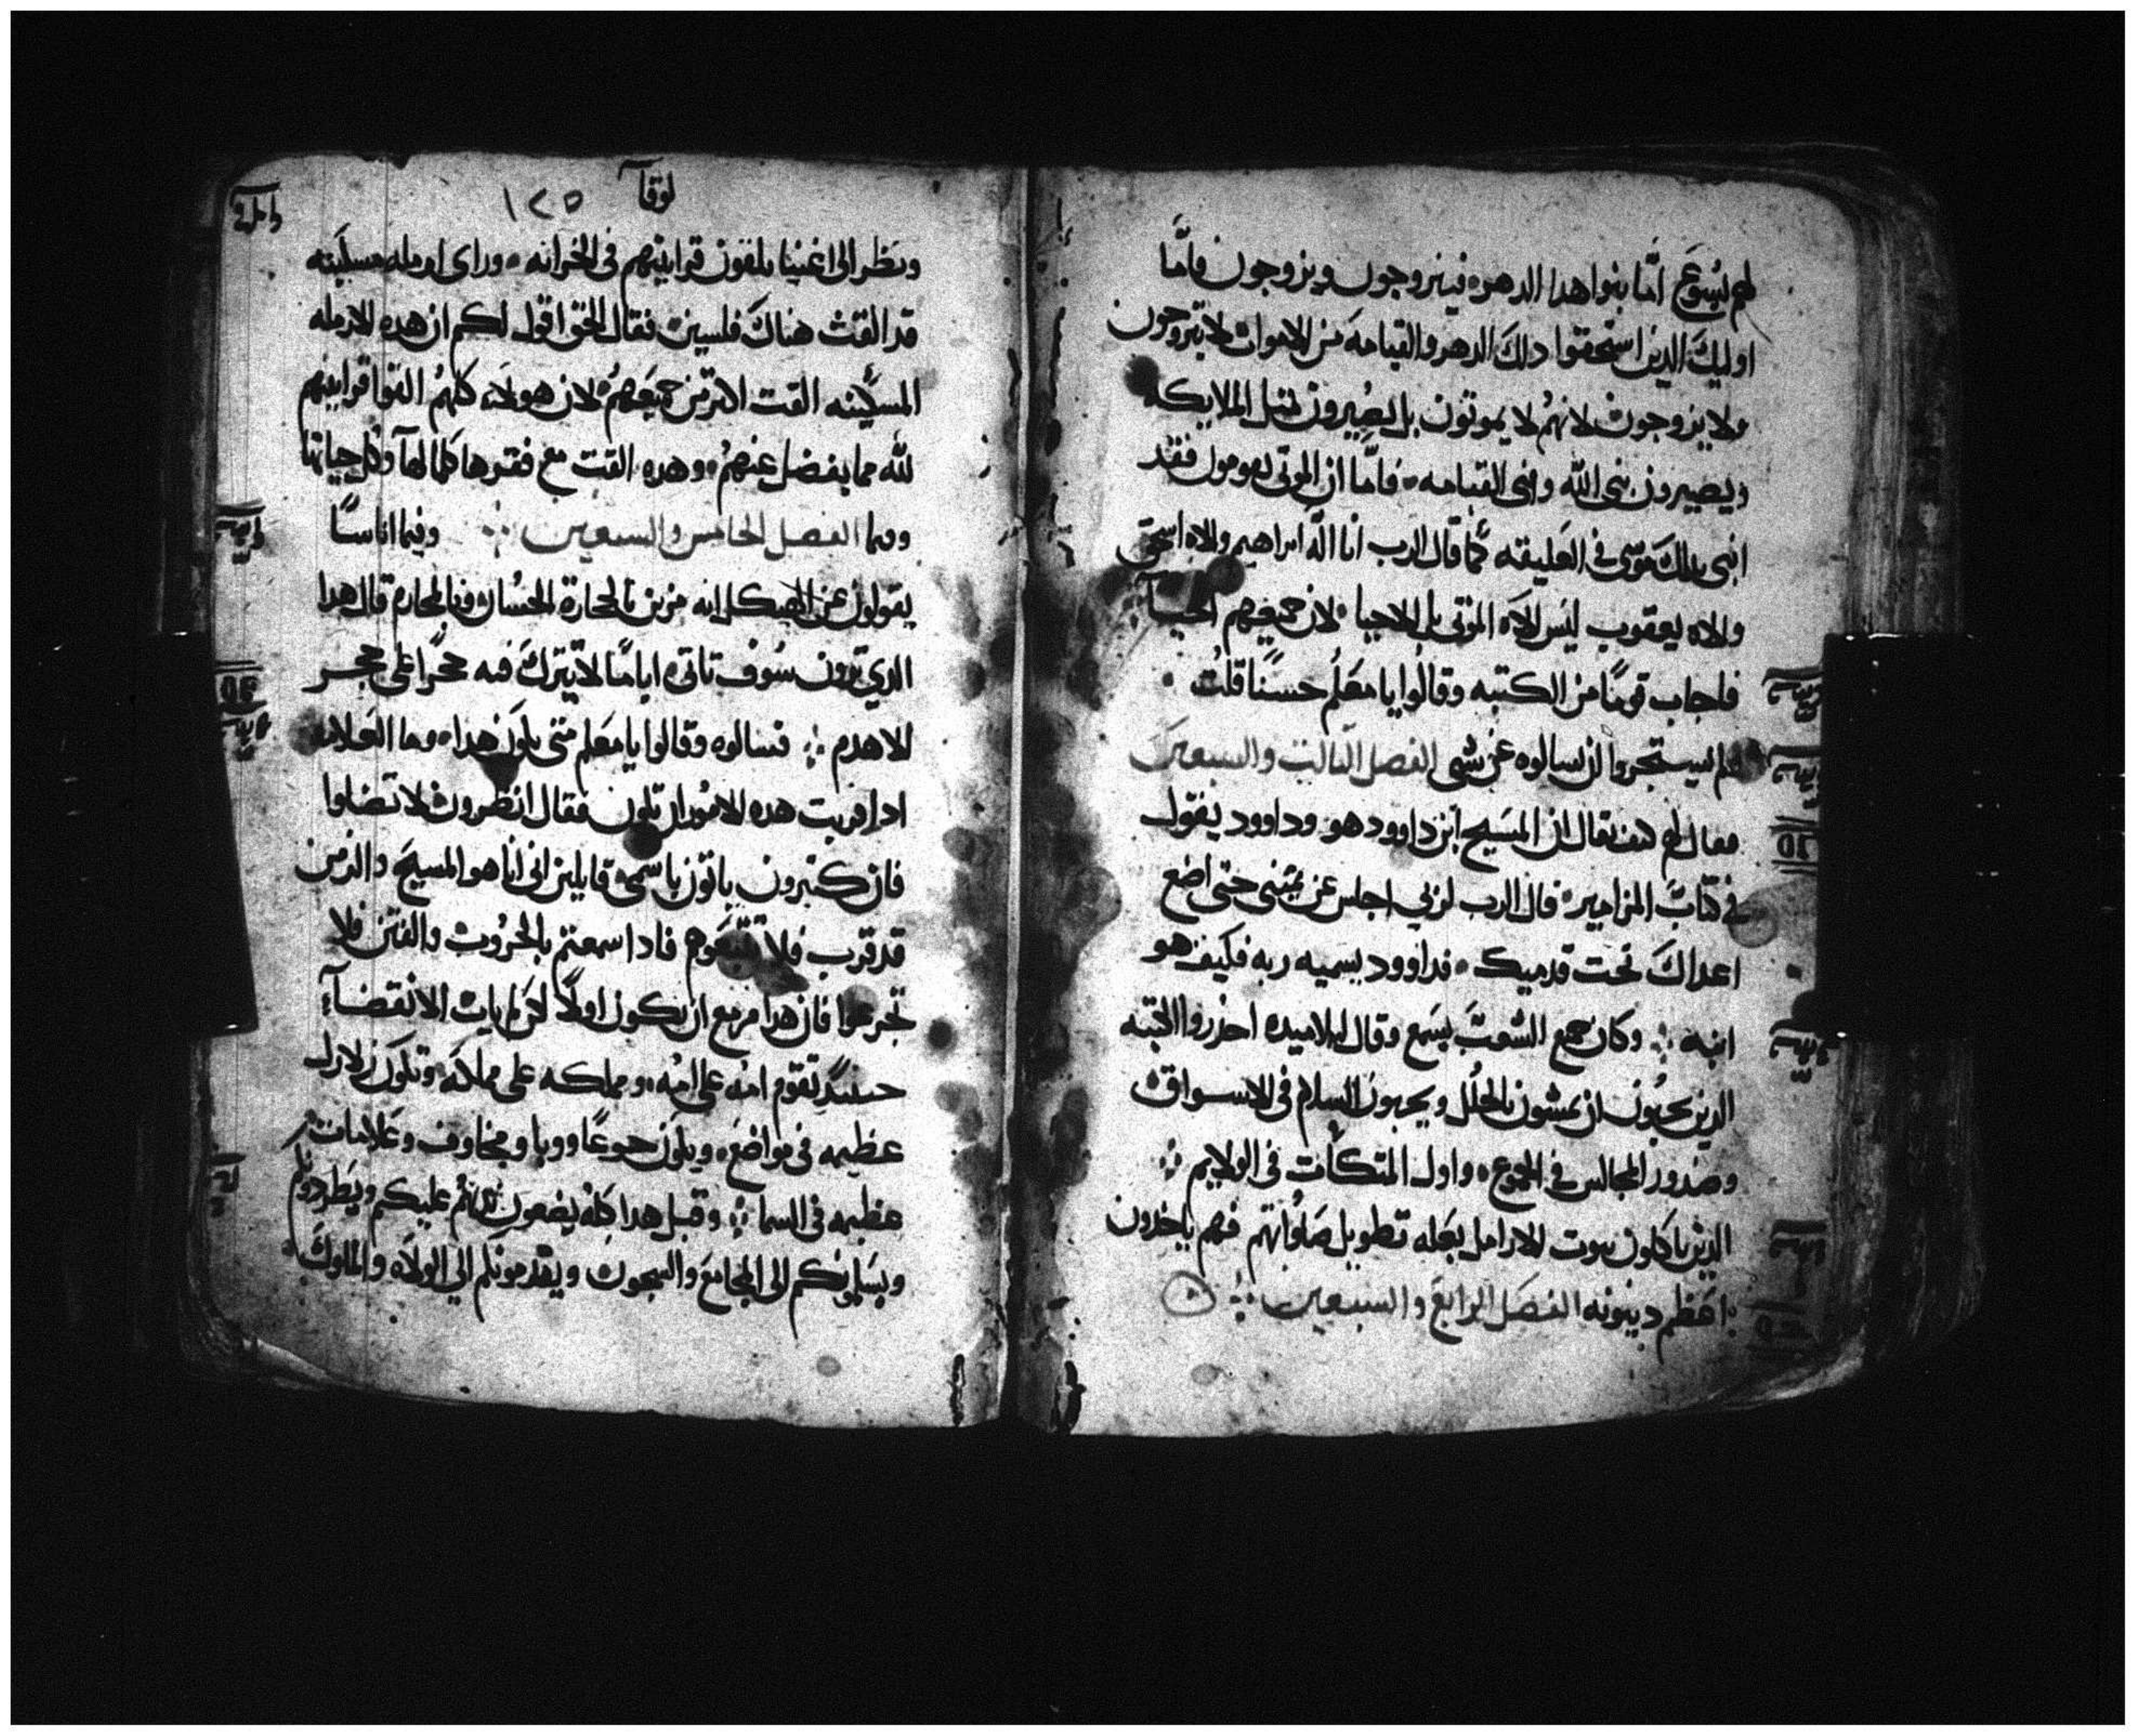 لهم يسوع اما بنوا هدا الدهر فيتزوجون ويزوجون فاما
اوليك الدين استحقوا دلك الدهر والقيامه من الاموات لا يتزوجون
ولا يزوجون لانهم لا يموتون بل يصيرون مثل الملايكه
ويصيرون بنى الله وبنى القيامه فاما ان الموتى يقومون فقد
انبى بدلك موسى فى العليقه كما قال الرب انا اله ابراهيم والاه اسحق
والاه يعقوب ليس الاه الموتى بل الاحيا لان جميعهم احيا
فاجاب قومًا من الكتبه وقالوا يا معلم حسنًا قلت
فلم يستجروا ان يسالوه عن شى الفصل التالت والسبعين
فقال لهم كيف يقال ان المسيح ابن داوود هو وداوود يقول
فى كتاب المزامير قال الرب لربى اجلس عن يمينى حتى اضع
اعداك تحت قدميك فداوود يسميه ربه فكيف هو
ابنه وكان جميع الشعب يسمع وقال لتلاميده احذروا الكتبه
الدين يحبون ان يمشون بالحلل ويحبون السلام فى الاسواق
وصدور المجالس فى الجموع واول المتكات فى الولايم
الدين ياكلون بيوت الارامل بعله تطويل صلواتهم فهم ياخدون
اعظم دينونه الفصل الرابع والسبعين
لوقا ١٢٥
ونظر الى اغنيا يلقون قرابينهم فى الخزانه وراى ارمله مسكينه
قد القت هناك فلسين فقال الحق اقول لكم ان هده الارمله
المسكينه القت اكتر من جميعهم لان هولاء كلهم القوا قرابينهم
لله مما يفضل عنهم وهده القت مع فقرها كلما لها وكل حياتها
وفيما الفصل الخامس والسبعين وفيما اناسًا
يقولون عن الهيكل انه مزين بالحجارة الحسان وبالحجاره قال هدا
الدي ترون سوف تاتى ايامًا لا يترك فيه حجرًا على حجر
الا هدم فسالوه وقالوا يا معلم متى يكون هدا وما العلامه
ادا قربت هده الامور ان تكون فقال انظروا لا تضلوا
فان كتيرون ياتون باسمى قايلين انى انا هو المسيح والزمن
قد قرب فلا تتبعوهم فادا سمعتم بالحروب والفتن فلا
تجزعوا فان هدا مزمع ان يكون اولًا لكن لم يات الانقضا
حينيد تقوم امه على امه ومملكه على مملكه وتكون زلازل
عظيمه فى مواضع ويكون جوعًا ووبا ومخاوف وعلامات
عظيمه فى السما وقبل هدا كله يضعون ايديهم عليكم ويطردونكم
ويسلمونكم الى المجامع والسجون ويقدمونكم الى الولاه والملوك